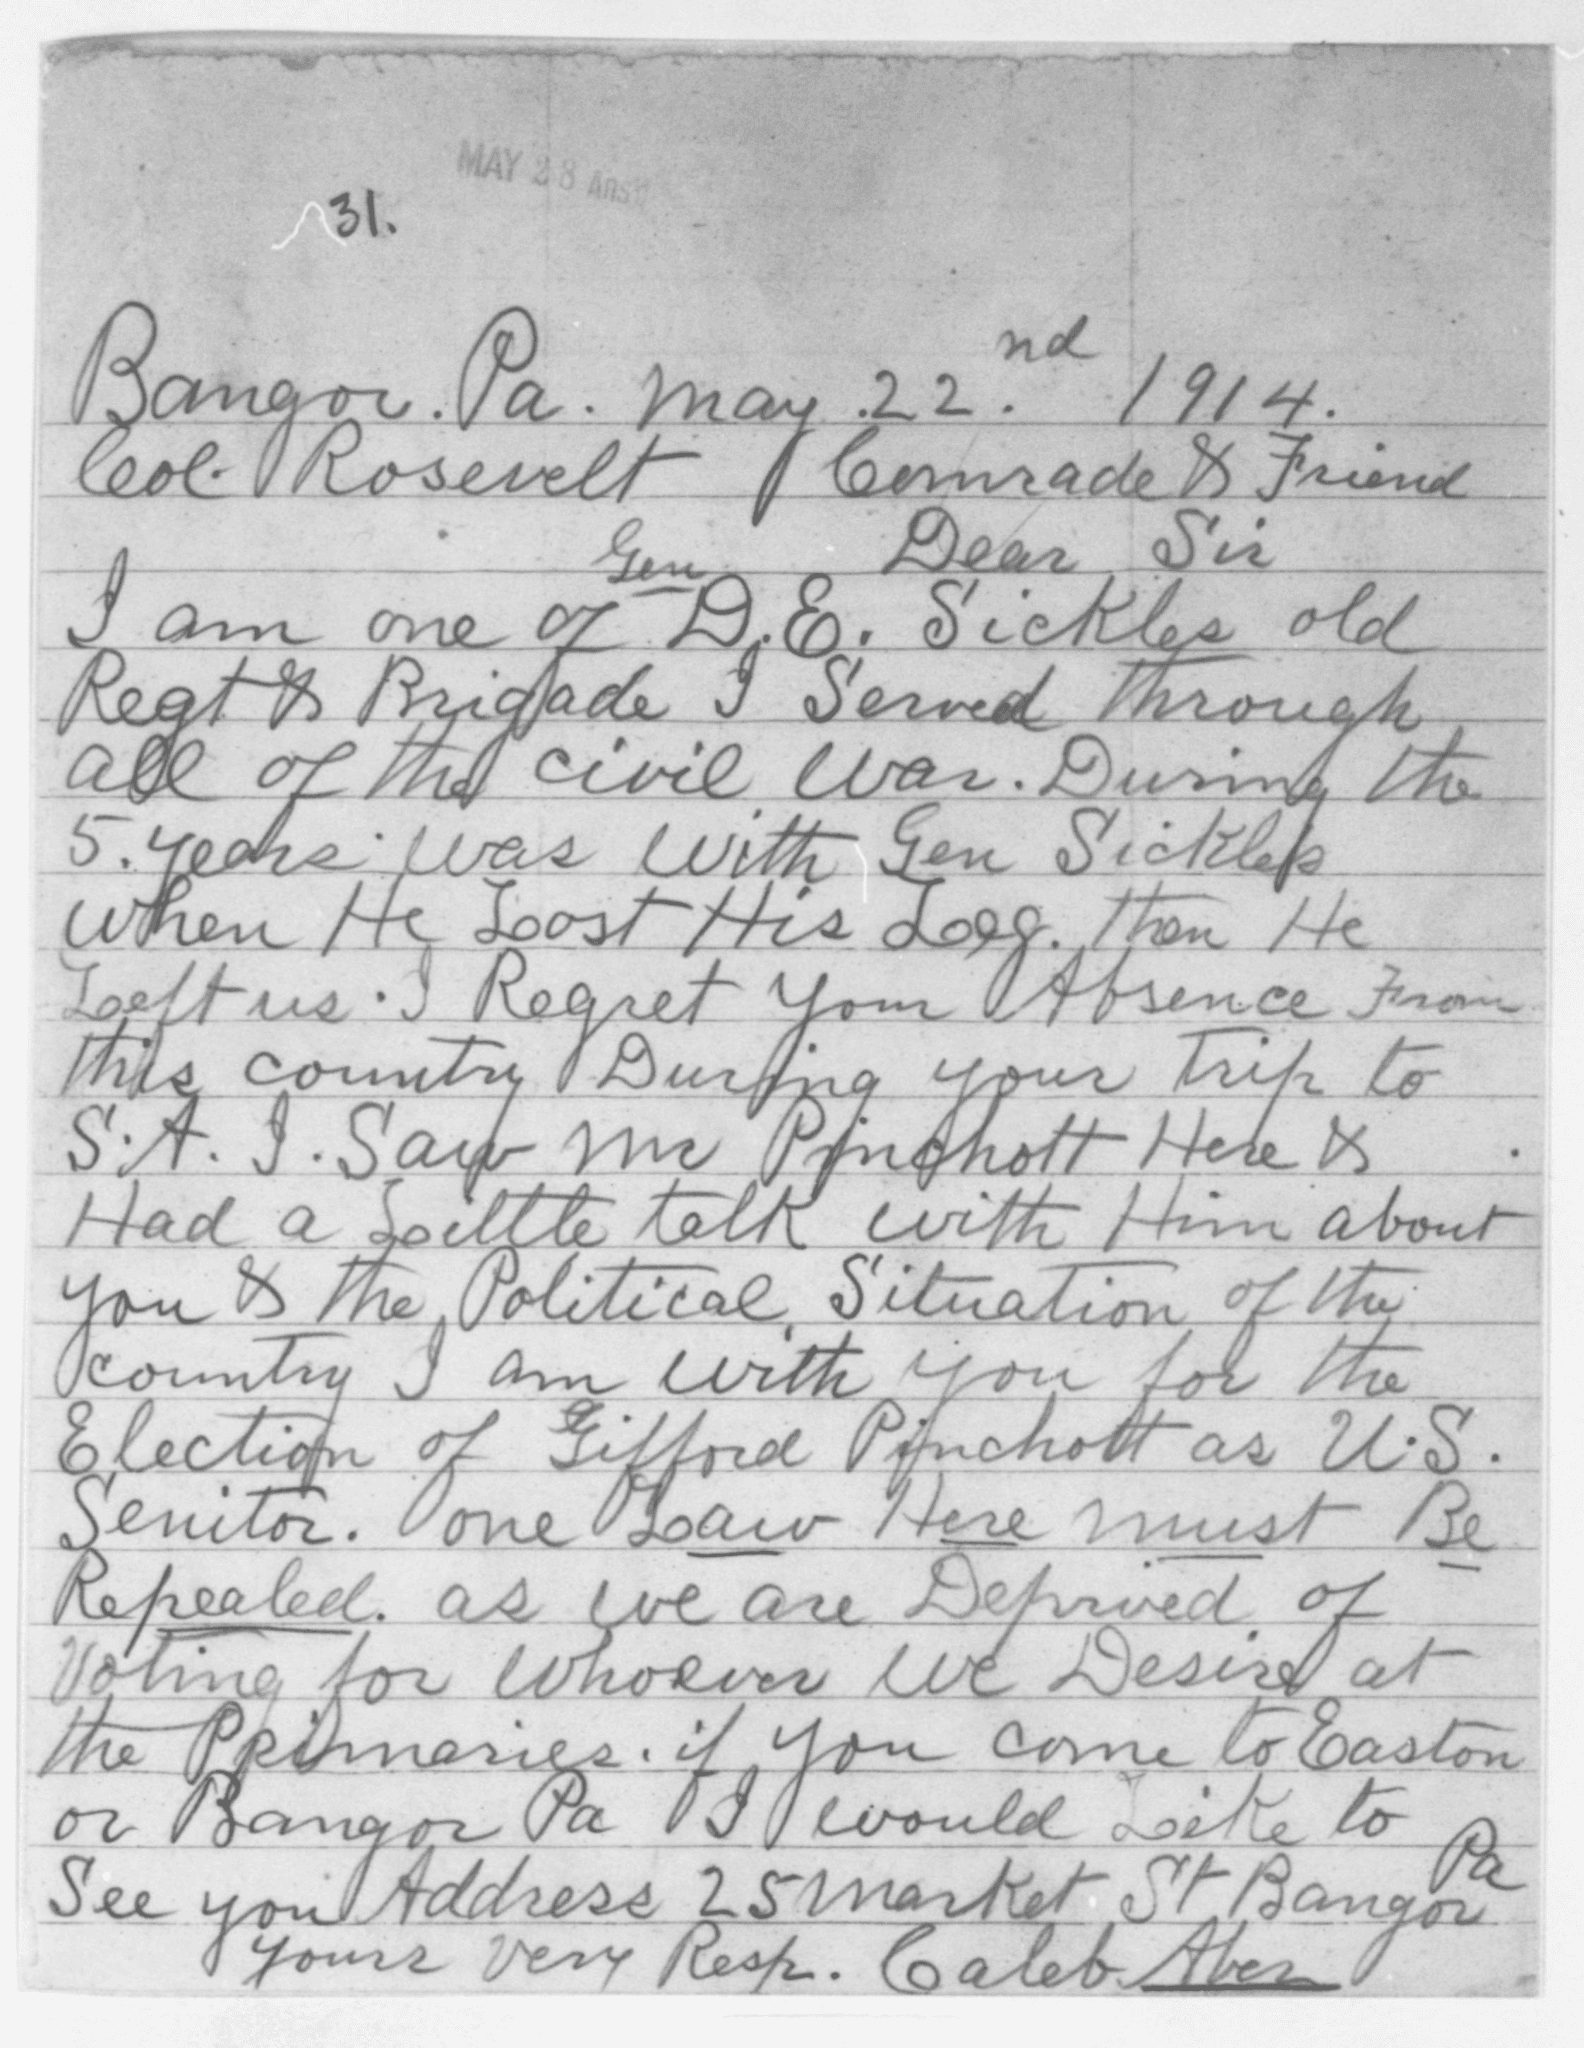 MAY 28 Ansd
31.
Bangor. Pa. May. 22nd. 1914.
Col. Rosevelt Comrade & Friend
Dear Sir
I am one of Gen D. E. Sickles old
Regt & Brigade I Served through
all of the civil war. During the
5. years was with Gen Sickles
when He Lost His Leg. then He
Left us. I Regret your Absence From
this country During your trip to
S. A. I. Saw Mr Pinchott Here &
Had a Little talk with Him about
you & the Political Situation of the
country I am with you for the
Election of Gifford Pinchott as U. S.
Senitor. one Law Here must Be
Repealed. as we are Deprived of
Voting for whoever we Desire at
the Primaries. if you come to Easton
or Bangor Pa I would Like to
See you Address 25 Market St Bangor Pa
yours Very Resp. Caleb Aber